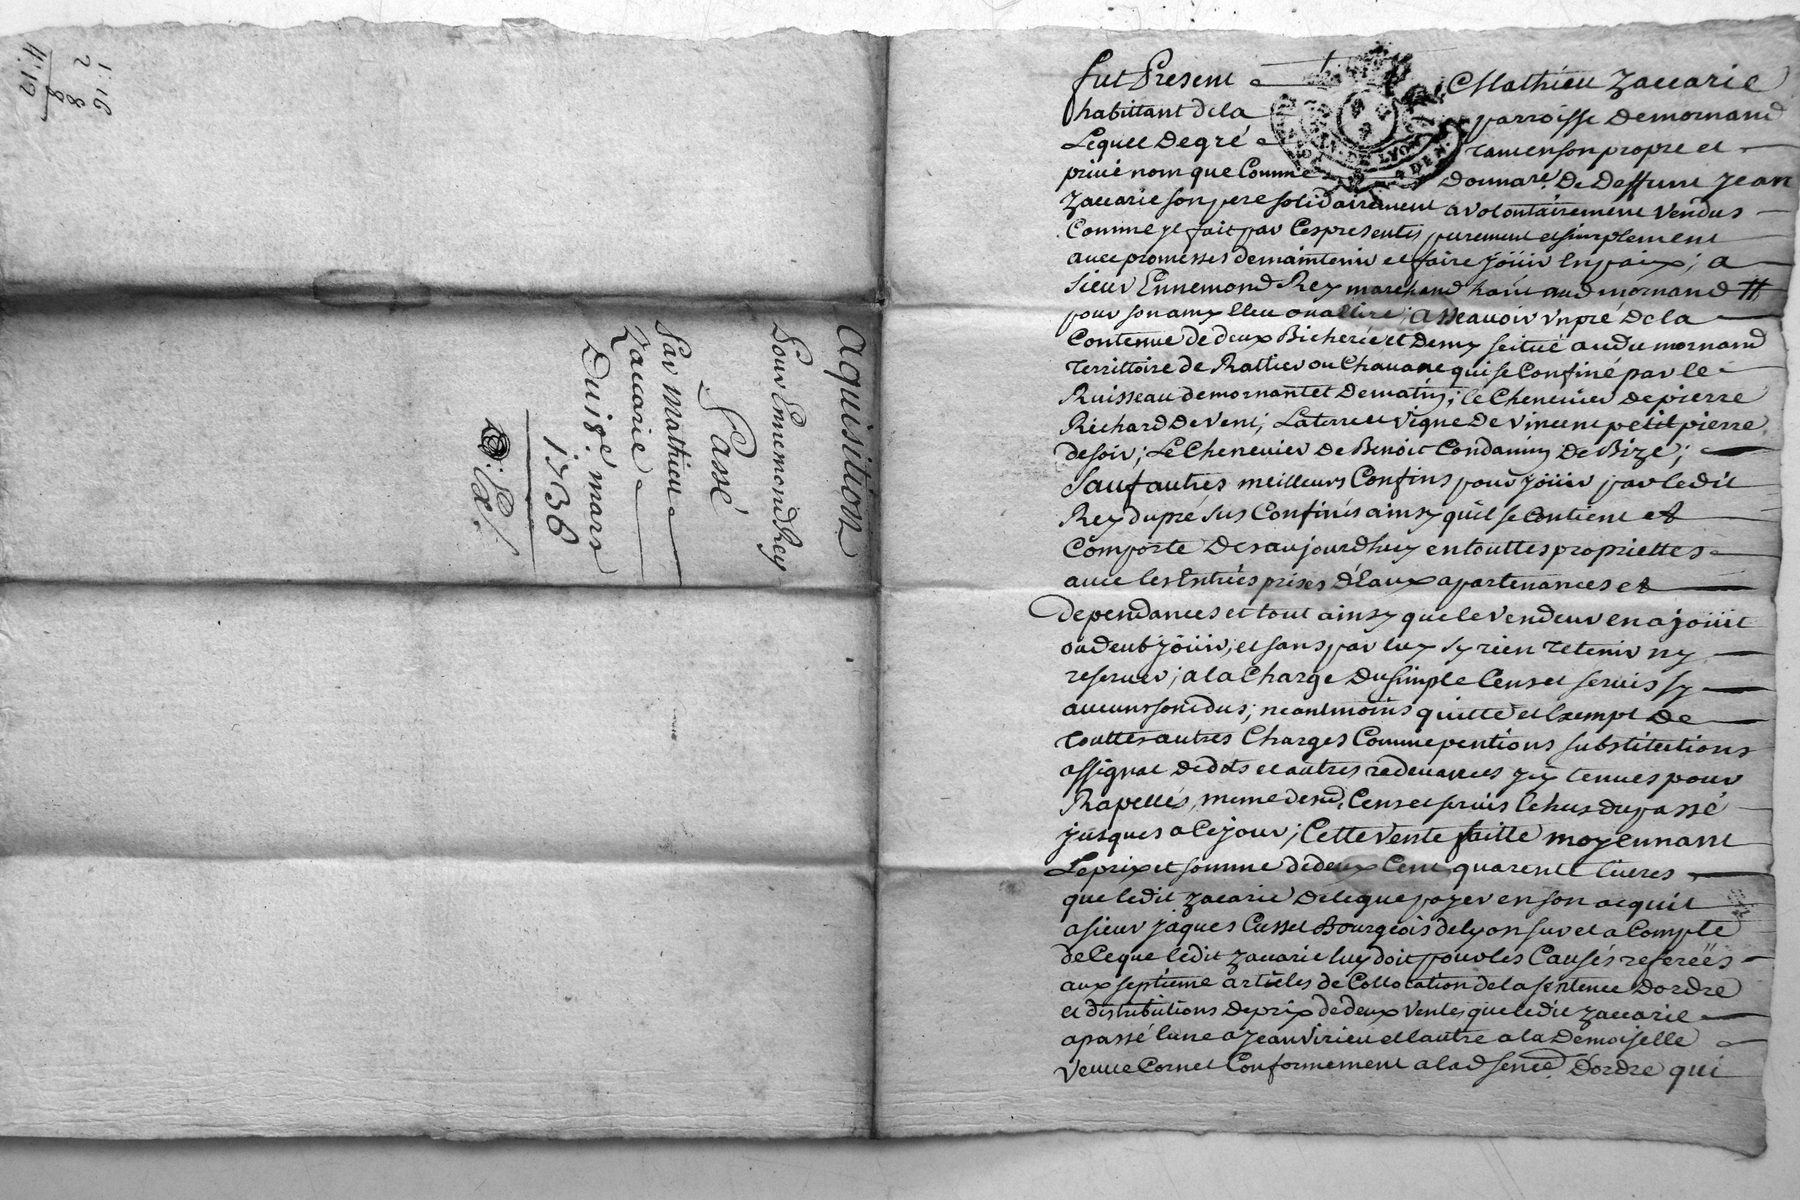 1: 16
2 8
8
4: 12
aquisition
Pour Ennemond Rey
Passé
Par Mathieu
Zacarie
Du 18e. mars
1738
fut Present Mathieu Zacarie
habittant de la parroisse de mornand
Lequel de gré tant en son propre et
privé nom que Comme Donnare. De Deffunt Jean
Zacarie son pere solidairement a volontairement vendus
Comme jl fait par Ces presentes purement et simplement
avec promesses de maintenir et faire joüir En paix; a
sieur Ennemond Rey marchand hant aud mornand #
pour son amy Eleu ou a Elire; a sseavoir vn pré De la
Contenue de deux Bicherée et Demy seitué audit mornand
Territtoire de Rattier ou Chavane qui se Confine par le
Ruisseau de mornant et De matin; le Chenevier de pierre
Richard De vent; La terre et vigne De vincent petit pierre
de soir; Le Chenevier De Benoit Condamin De Bize;
Sauf autres meilleurs Confins pour joüir par ledit
Rey du pré sus Confinés ainsy qu'il se Contient et
Comporte Des aujourdhuy en touttes propriettes
avec les Entrées prises d'Eaux apartenances et
dependances et tout ainsy que le vendeur en a joüit
ou deub joüir, et sans par luy sy rien retenir ny
reserver; a la Charge Du simple Cens et servis sy
aucuns sont dus; neantmoins quitte et Exempt De
touttes autres Charges Comme pentions substitutions
assignat de dots et autres redevances jcy tenues pour
Rapellés, meme desd. Cens et servis Echus du passé
jusques a Ce jour; Cette vente faitte moyennant
Le prix et somme de deux Cent quarente livres
que ledit Zacarie Delegue payer en son acquit
a sieur Jaques Cusset Bourgeois de lyon sur et a Compte
de Ce que ledit Zacarie luy doit pour les Causés referéës
aux septieme articles de Collocation de la sentence D'ordre
et distributions De prix de deux ventes que ledit Zacarie
a passé l'une a Jean virieu et l'autre a la Demoiselle
veuve Cornet Conformement a lad sence. D'ordre qui